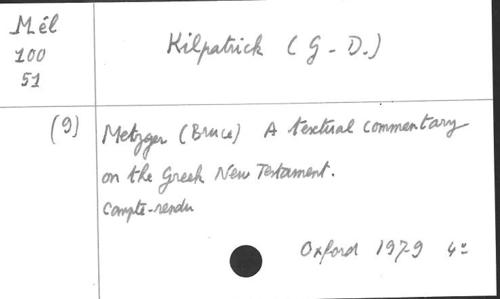 Mél
100
51
Kilpatrick (G-D.)
(9)
Metzger (Bruce) A textual commentary
on the Greek New Testament.
Compte-rendu
Oxford 1979 4°